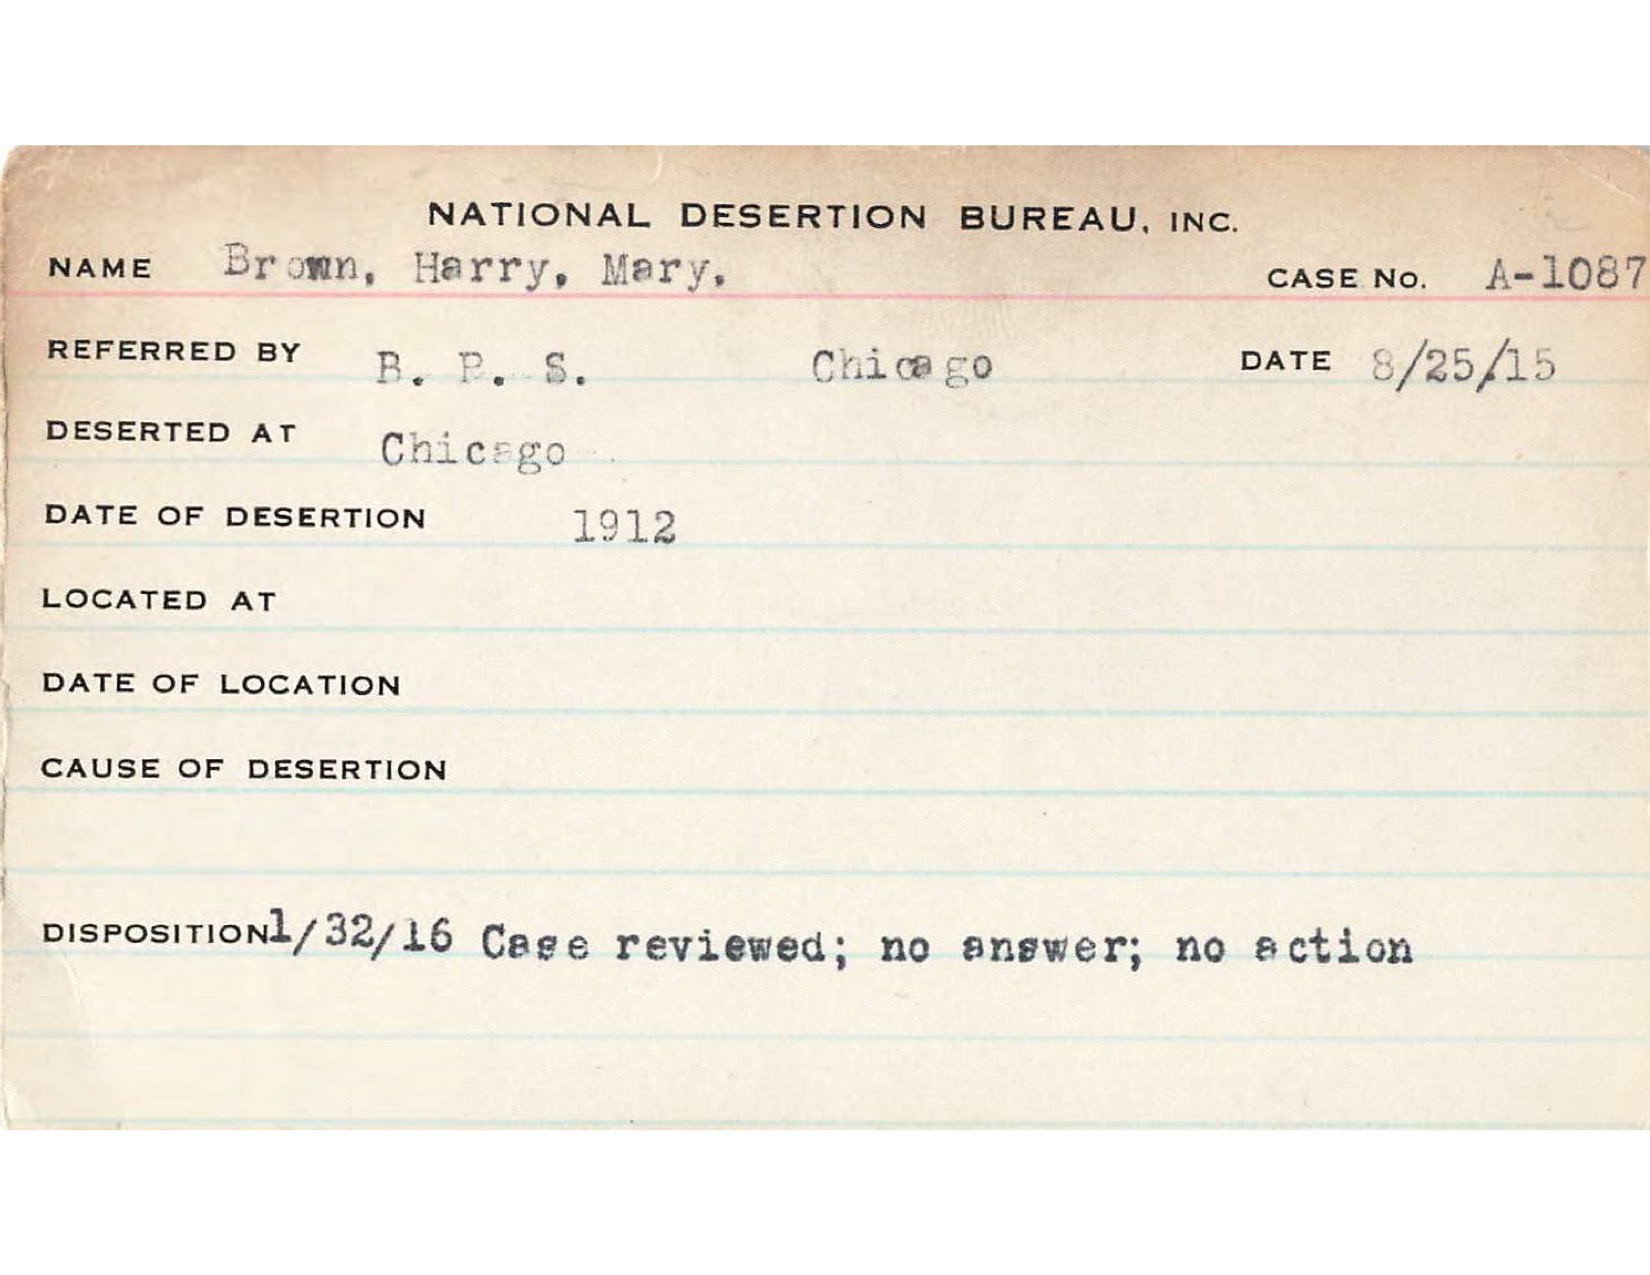 NATIONAL DESERTION BUREAU, INC.
NAME Brown, Harry, Mary. CASE No. A-1087
REFERRED BY B. P. S. Chicago DATE 8/25/15
DESERTED AT Chicago
DATE OF DESERTION 1912
LOCATED AT
DATE OF LOCATION
CAUSE OF DESERTION
DISPOSITION 1/32/16 Case reviewed; no answer; no action